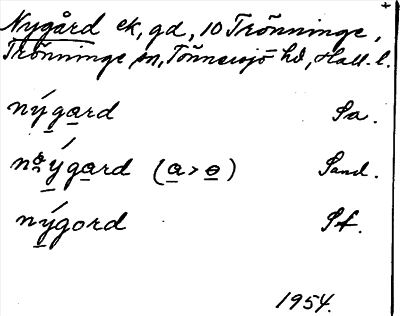 Nygård ek, gd, 10 Trönninge,
Trönninge sn, Tönnersjö hd, Hall. l.
nýgard Sa.
nýgard (a > ɵ) Sand.
nýgord Sf.
1954.